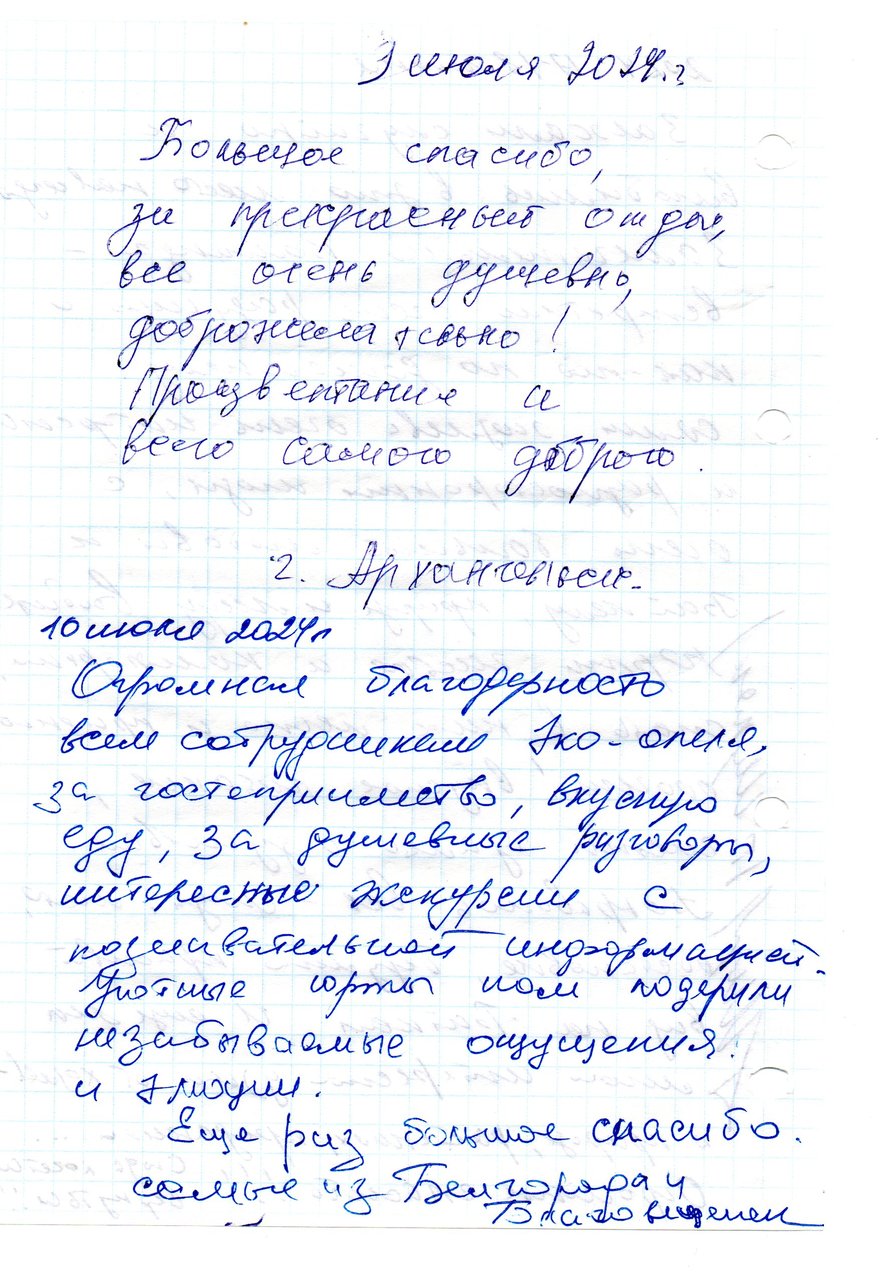 3 июля 2024 г
Большое спасибо,
за прекрасный отдых,
все очень душевно,
доброжелательно!
Процветания и
всего самого доброго.
г. Архангельск.
10 июля 2024г
Огромная благодарность
всем сотрудникам Эко-отеля,
за гостеприимство, вкусную
еду, за душевные разговоры,
интересные экскурсии с
познавательной информацией.
Уютные юрты нам подарили
незабываемые ощущения
и эмоции.
Еще раз большое спасибо.
семья из Белгорода и
Благовещенск